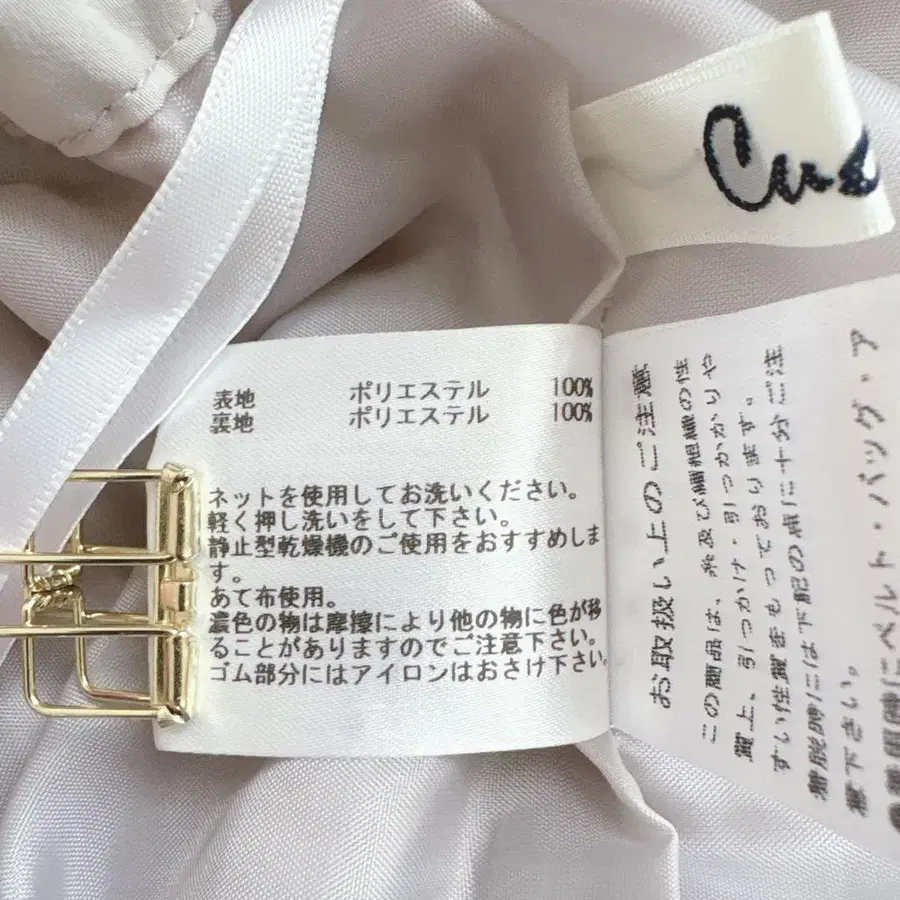 Cus
表地 ポリエステル 100%
裏地 ポリエステル 100%
ネットを使用してお洗いください。
軽く押し洗いをして下さい。
静止型乾燥機のご使用をおすすめしま
す。
あて布使用。
濃色の物は摩擦により他の物に色が移
ることがありますのでご注意下さい。
ゴム部分にはアイロンはおさけ下さい。
お取扱い上のご注意
この商品は、糸及び編組織の性
質上、引っかけ・引っつかかりや
すい性質をもっております。
着脱時には下記の様に十分ご注
意下さい。
にベルト・バッグ・ア